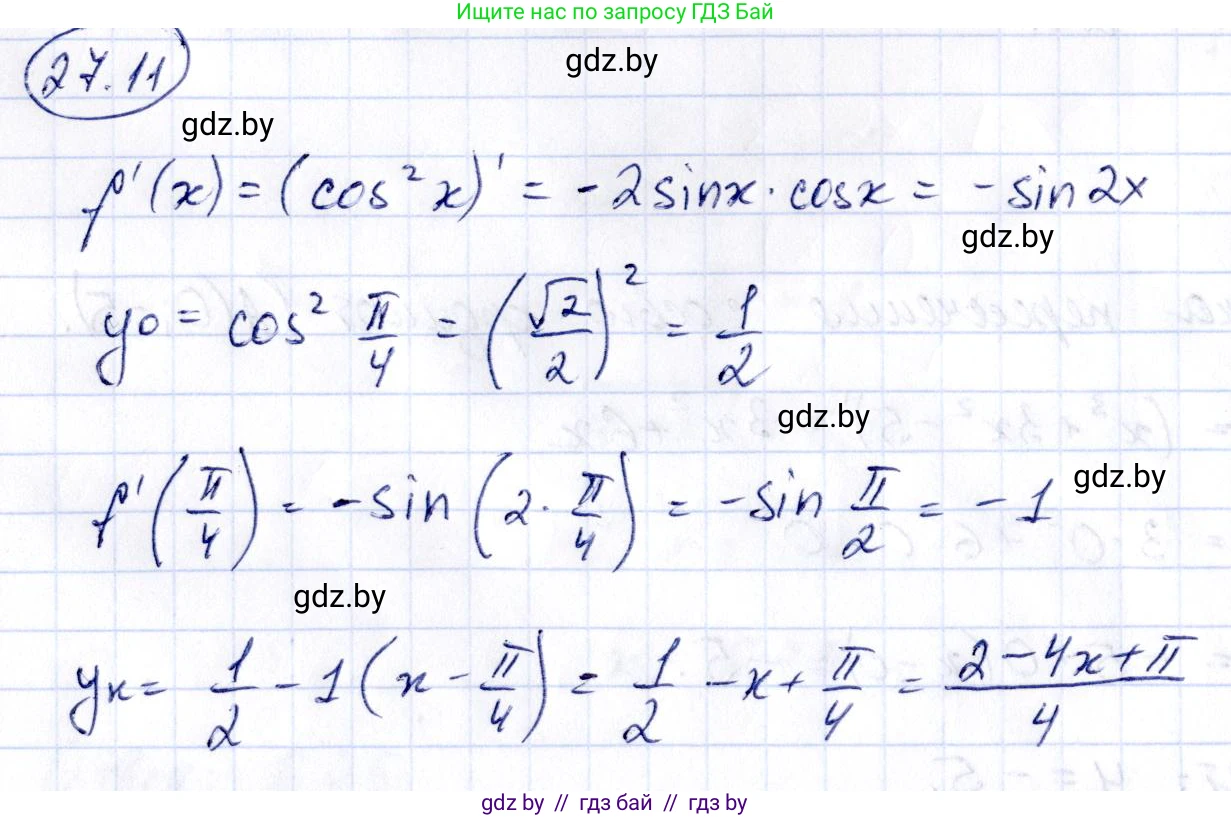 Ищите нас по запросу ГДЗ Бай
27.11
gdz.by
gdz.by
f'(x) = (cos²x)' = -2sinx·cosx = -sin2x
gdz.by
y₀ = cos² π/4 = (√2/2)² = 1/2
gdz.by
f'(π/4) = -sin(2·π/4) = -sin π/2 = -1
gdz.by
gdz.by
yк = 1/2 - 1(x - π/4) = 1/2 - x + π/4 = (2-4x+π)/4
gdz.by
gdz by // гдз бай // гдз by